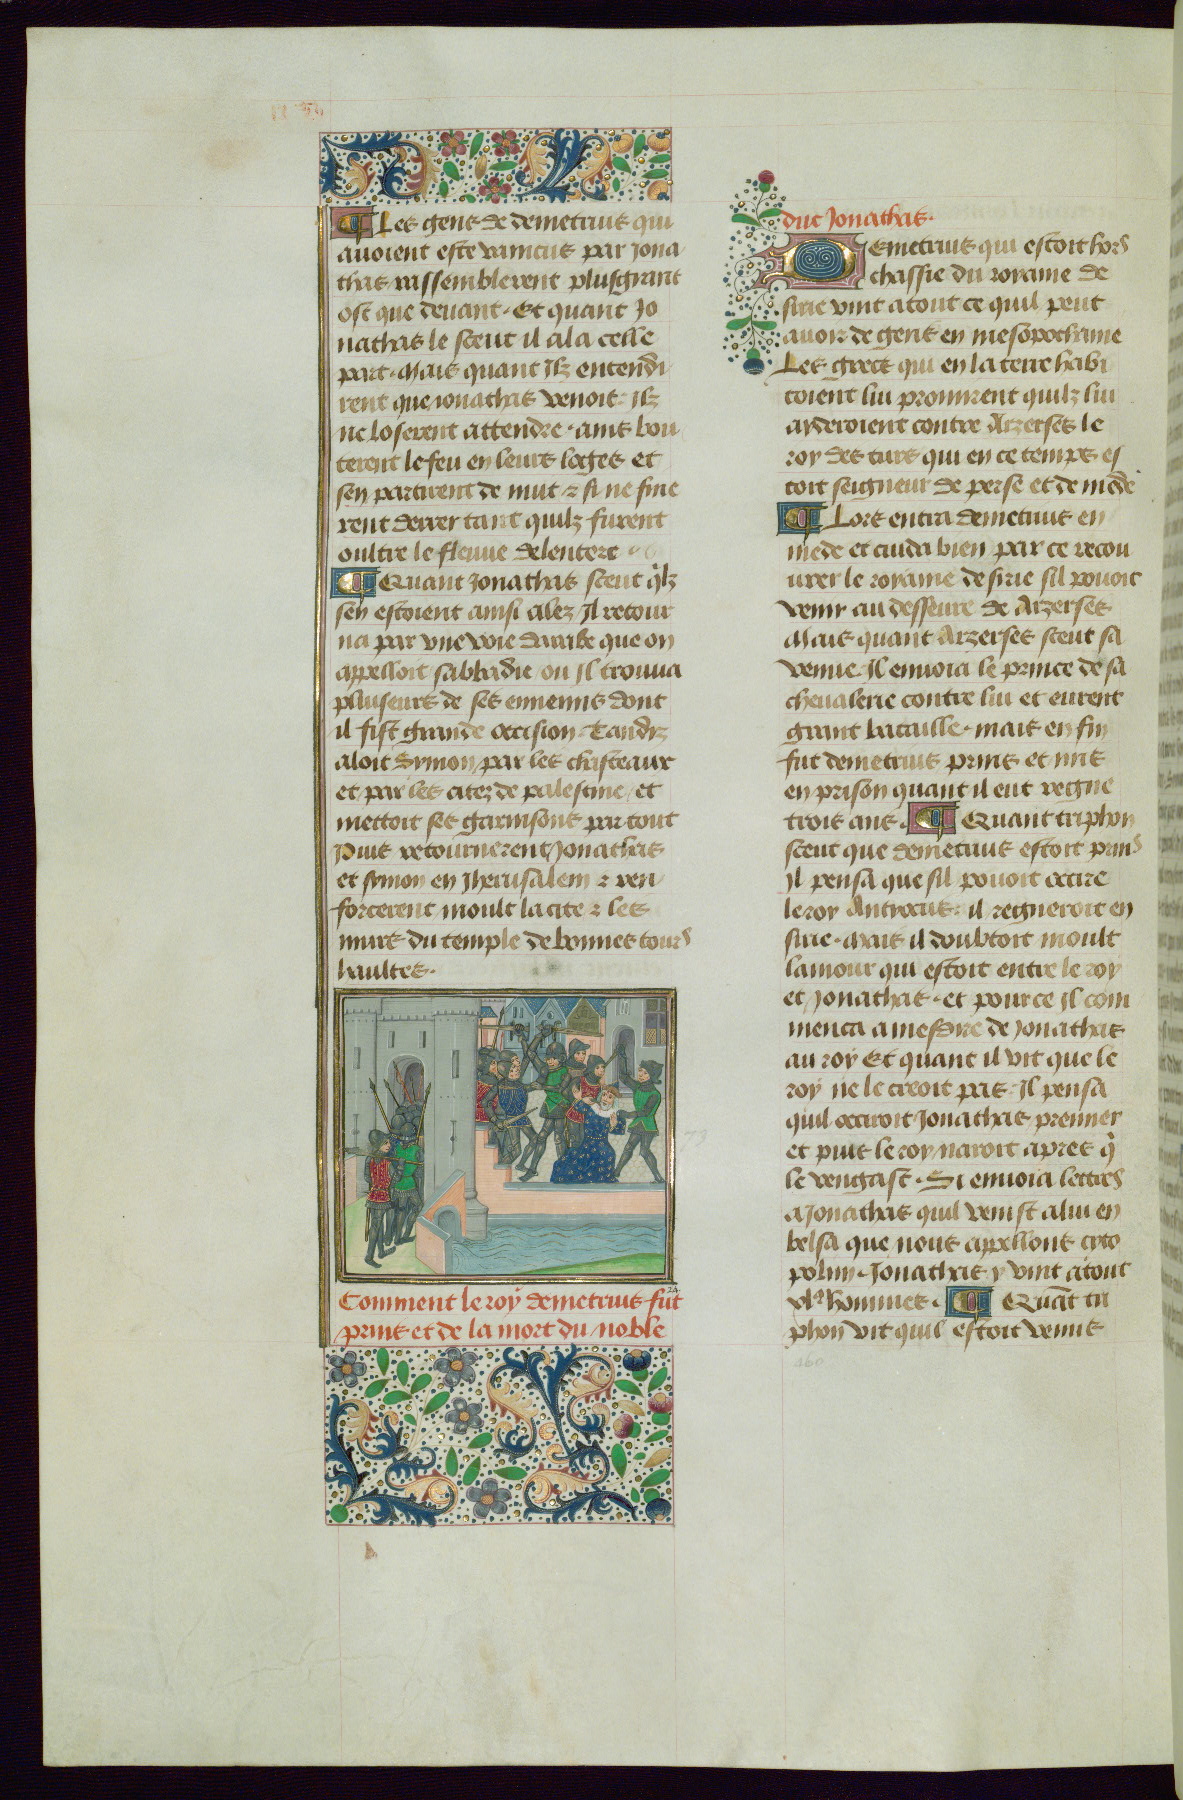 Les gens de demetrius qui
auoient este vaincus par Jona
thas rassemblerent plus grant
ost que deuant. Et quant Jo
nathas le sceut il ala celle
part. Mais quant Ilz entendi
rent que ionathas venoit. ilz
ne loserent attendre. ains bou
terent le feu en leurs loges et
sen partirent de nuit z si ne fine
rent derrer tant quilz furent
oultre le fleuue deleutere
Quant Jonathas sceut qlz
sen estoient ainsi alez Il retour
na par vne voie darabe que on
appelloit sabbadie ou Il trouua
pluseurs de ses ennemis dont
il fist grande occision. Tandiz
aloit Symon par les chasteaux
et par les citez de palestine et
mettoit ses garnisons par tout
Puis retournerent Jonathas
et symon en Jherusalem z ren
forcerent moult la cite z les
murs du temple de bonnes tours
haultes.
Comment le roy demetrius fut
prins et de la mort du noble
duc Jonathas.
Demetrius qui estoit hors
chassie du royaume de
sirie vint atout ce quil peut
auoir de gens en mesopothame
Les grecs qui en la terre habi
toient lui promirent quilz lui
aideroient contre Arzerses le
roy des turs qui en ce temps es
toit seigneur de perse et de mede
Lors entra demetrius en
mede et cuida bien par ce recou
urer le royaume de sirie sil pouoit
venir au desseure de Arzerses
Mais quant Arzerses sceut sa
venue Il enuoia le prince de sa
cheualerie contre lui et eurent
grant bataille. mais en fin
fut demetrius prins et mis
en prison quant il eut regne
trois ans. Quant triphon
sceut que demetrius estoit prins
Il pensa que sil pouoit occire
le roy Antyocus. il regneroit en
sirie. Mais il doubtoit moult
lamour qui estoit entre le roy
et Jonathas. et pource Il com
menca a mesdire de Jonathas
au roy Et quant il vit que le
roy ne le creoit pas. Il pensa
quil occiroit Jonathas premier
et puis le roy naroit apres q
le vengast. Si enuoia lettres
a Jonathas quil venist a lui en
belsa que nous appellons cyto
polim. Jonathas y vint atout
hommes. Quat tri
phon vit quil estoit venus
460